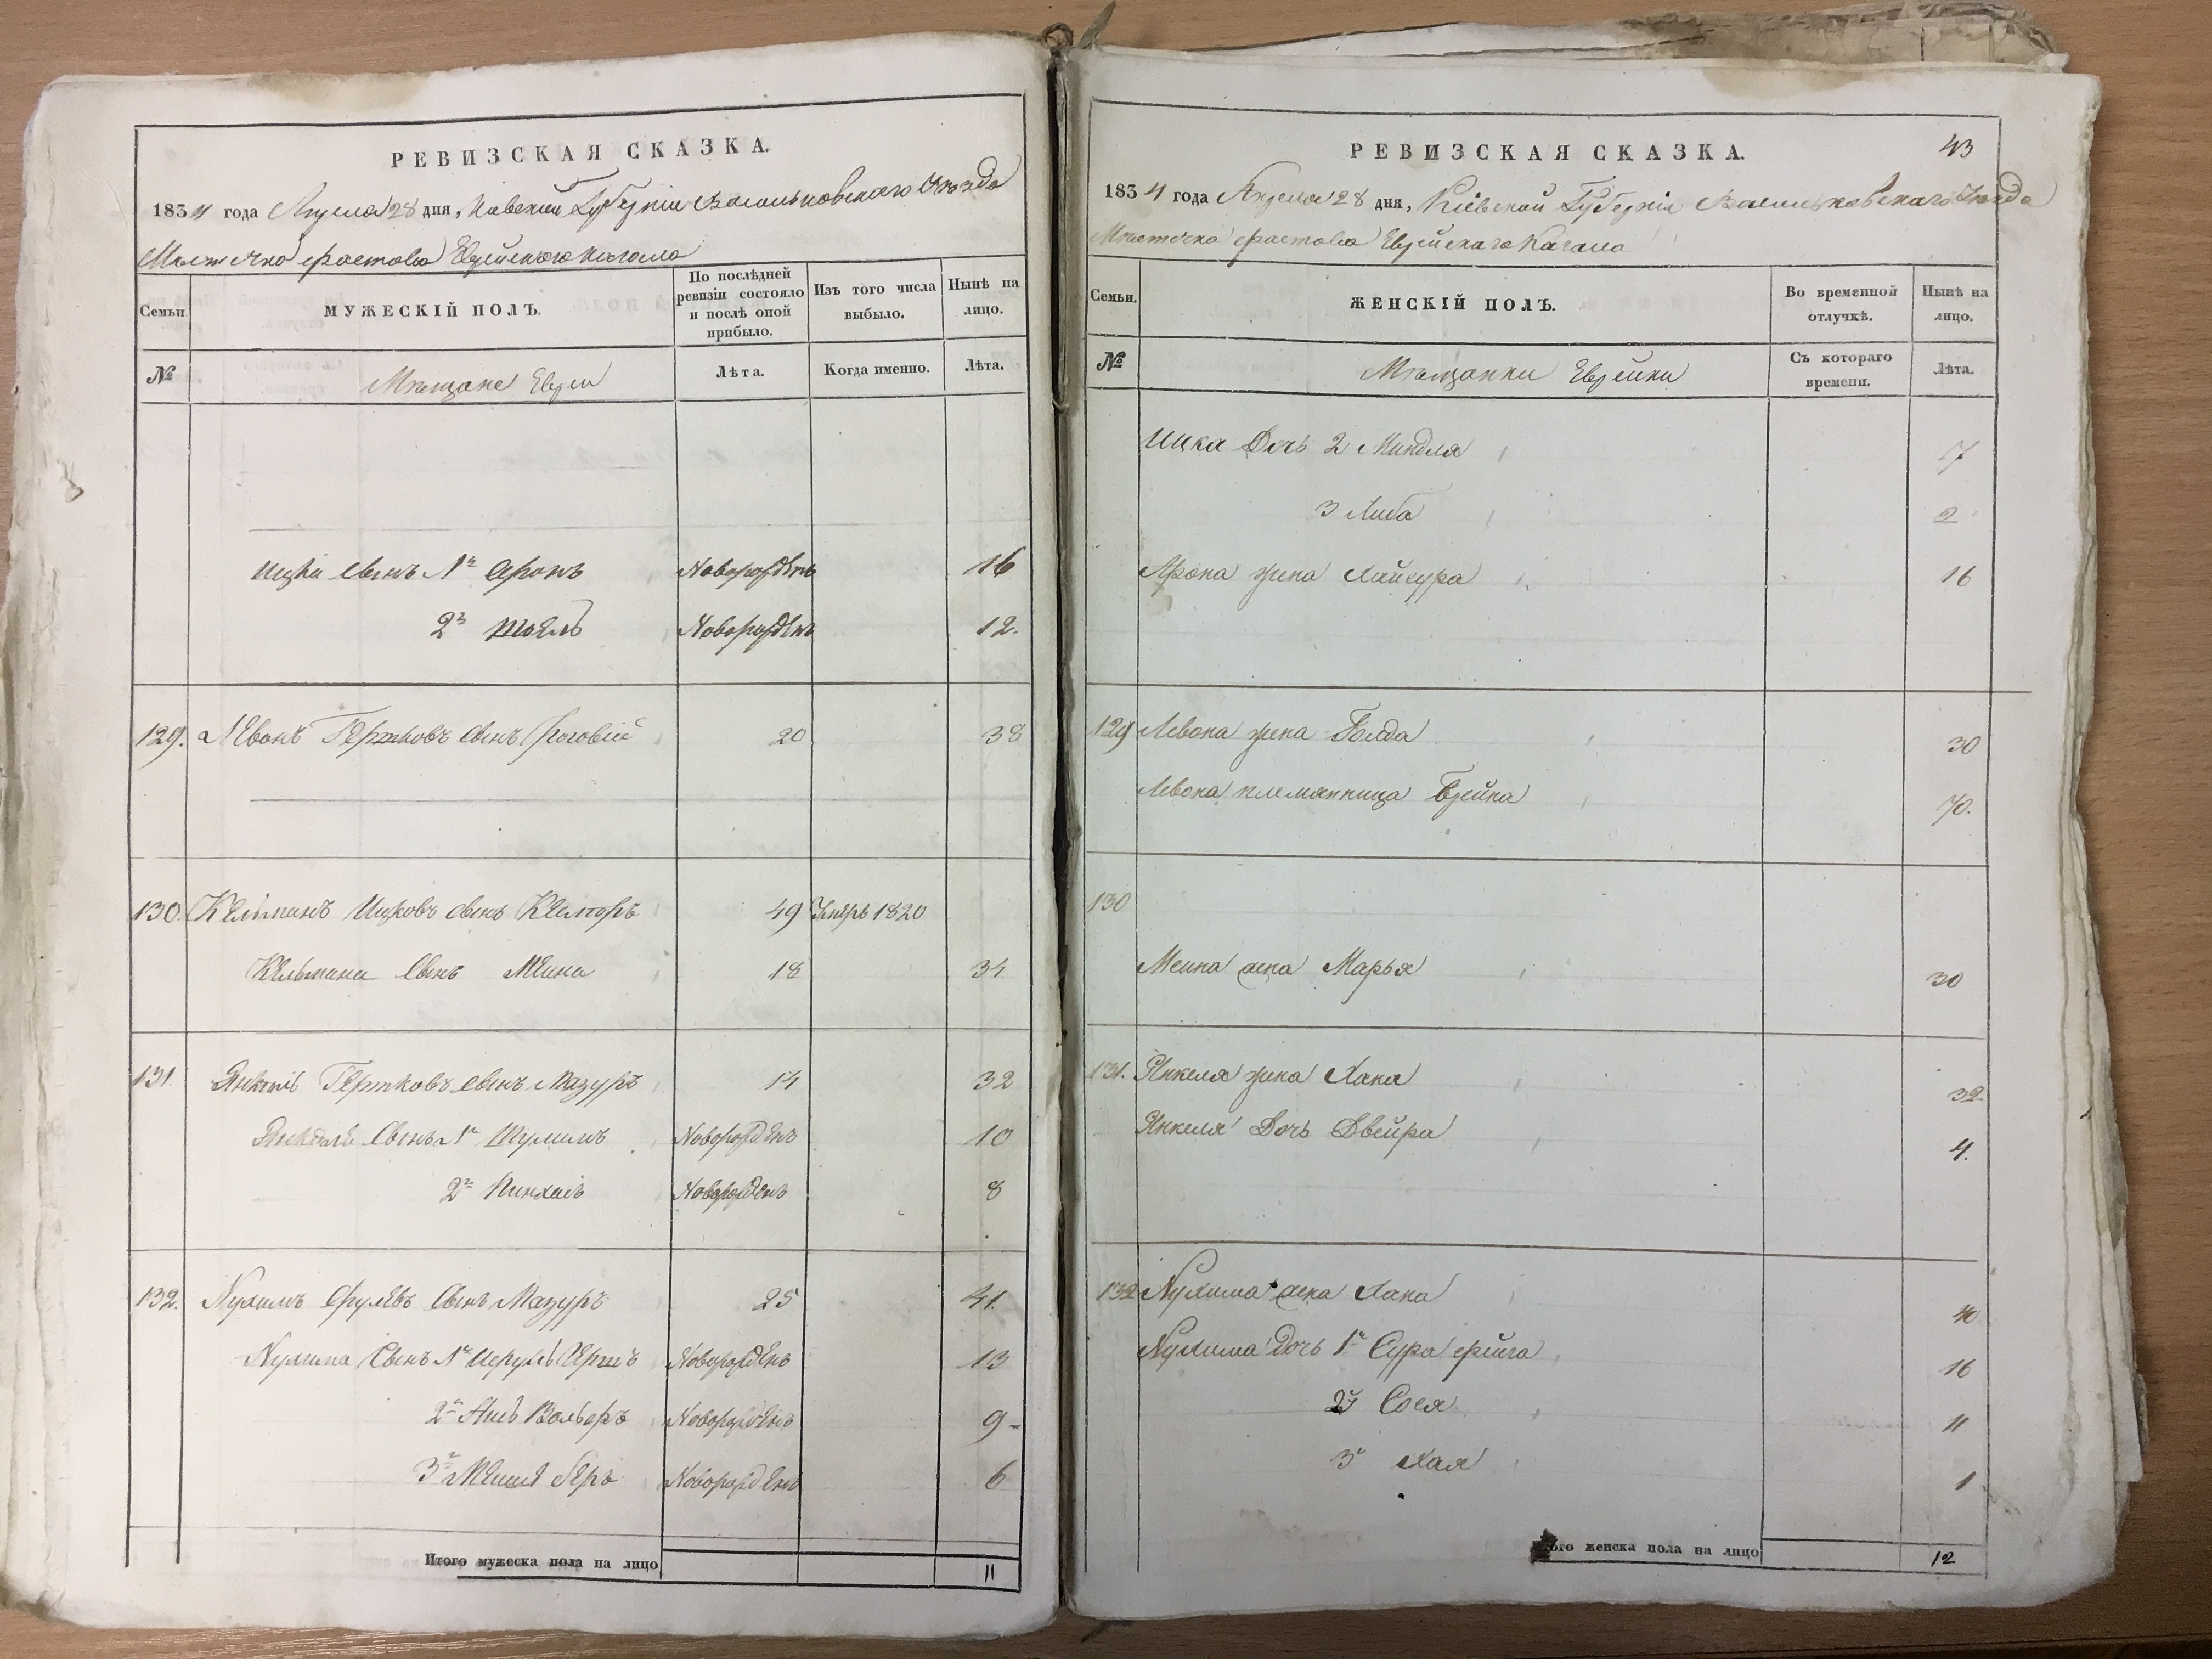 РЕВИЗСКАЯ СКАЗКА.
1834 года Апреля 28 дня, Киевской Губерніи Васильковскаго Уѣзда
Мѣстечка Фастова Еврейскаго Кагала
Семьи.
МУЖЕСКІЙ ПОЛЪ.
По послѣдней ревизіи состояло и послѣ оной прибыло.
Изъ того числа выбыло.
Нынѣ на лицо.
№
Мѣщане Евреи
Лѣта.
Когда именно.
Лѣта.
Ицки сынъ 1й Аронъ Новорожденъ 16
2й Новорожденъ 12.
129. Левонъ Гершковъ сынъ 20 38
130. Кельманъ Ицковъ сынъ 49 Умеръ 1820
Кельмана сынъ Меина 18 34
131. Янкель Гершковъ сынъ Мазуръ 14 32
Янкеля сынъ 1й Шулимъ Новорожденъ 10
2й Новорожденъ 8
132. Нухимъ Сруревъ сынъ Мазуръ 25 41.
Нухима сынъ 1й Новорожденъ 13
2й Вольфъ Новорожденъ 9
3й Беръ Новорожденъ 6
Итого мужеска пола на лицо 11
РЕВИЗСКАЯ СКАЗКА.
43
1834 года Апреля 28 дня, Кіевской Губерніи Васильковскаго Уѣзда
Мѣстечка Фастова Еврейскаго Кагала
Семьи.
ЖЕНСКІЙ ПОЛЪ.
Во временной отлучкѣ.
Нынѣ на лицо.
№
Мѣщанки Еврейки
Съ котораго времени.
Лѣта.
Ицка дочь 2 Миндля 7
3 Либа 2
Арона жена Хайсура 16
129 Левона жена Голда 30
Левона племянница Брейна 70.
130
Меина жена Марья 30
131. Янкеля жена Хана 32
Янкеля дочь Двейра 4.
132 Нухима жена Хана 40
Нухима дочь 1я Сура Фейга 16
2я Сося 11
3я Хая 1
женска пола на лицо 12